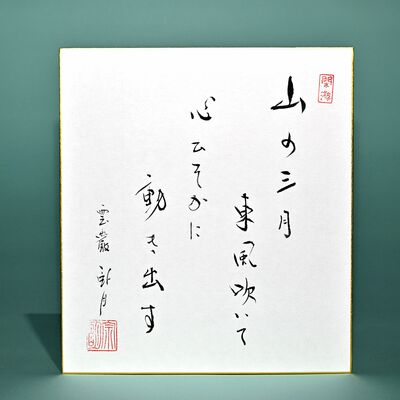 山の三月
東風吹いて
心ひそかに
動き出す
雲巌